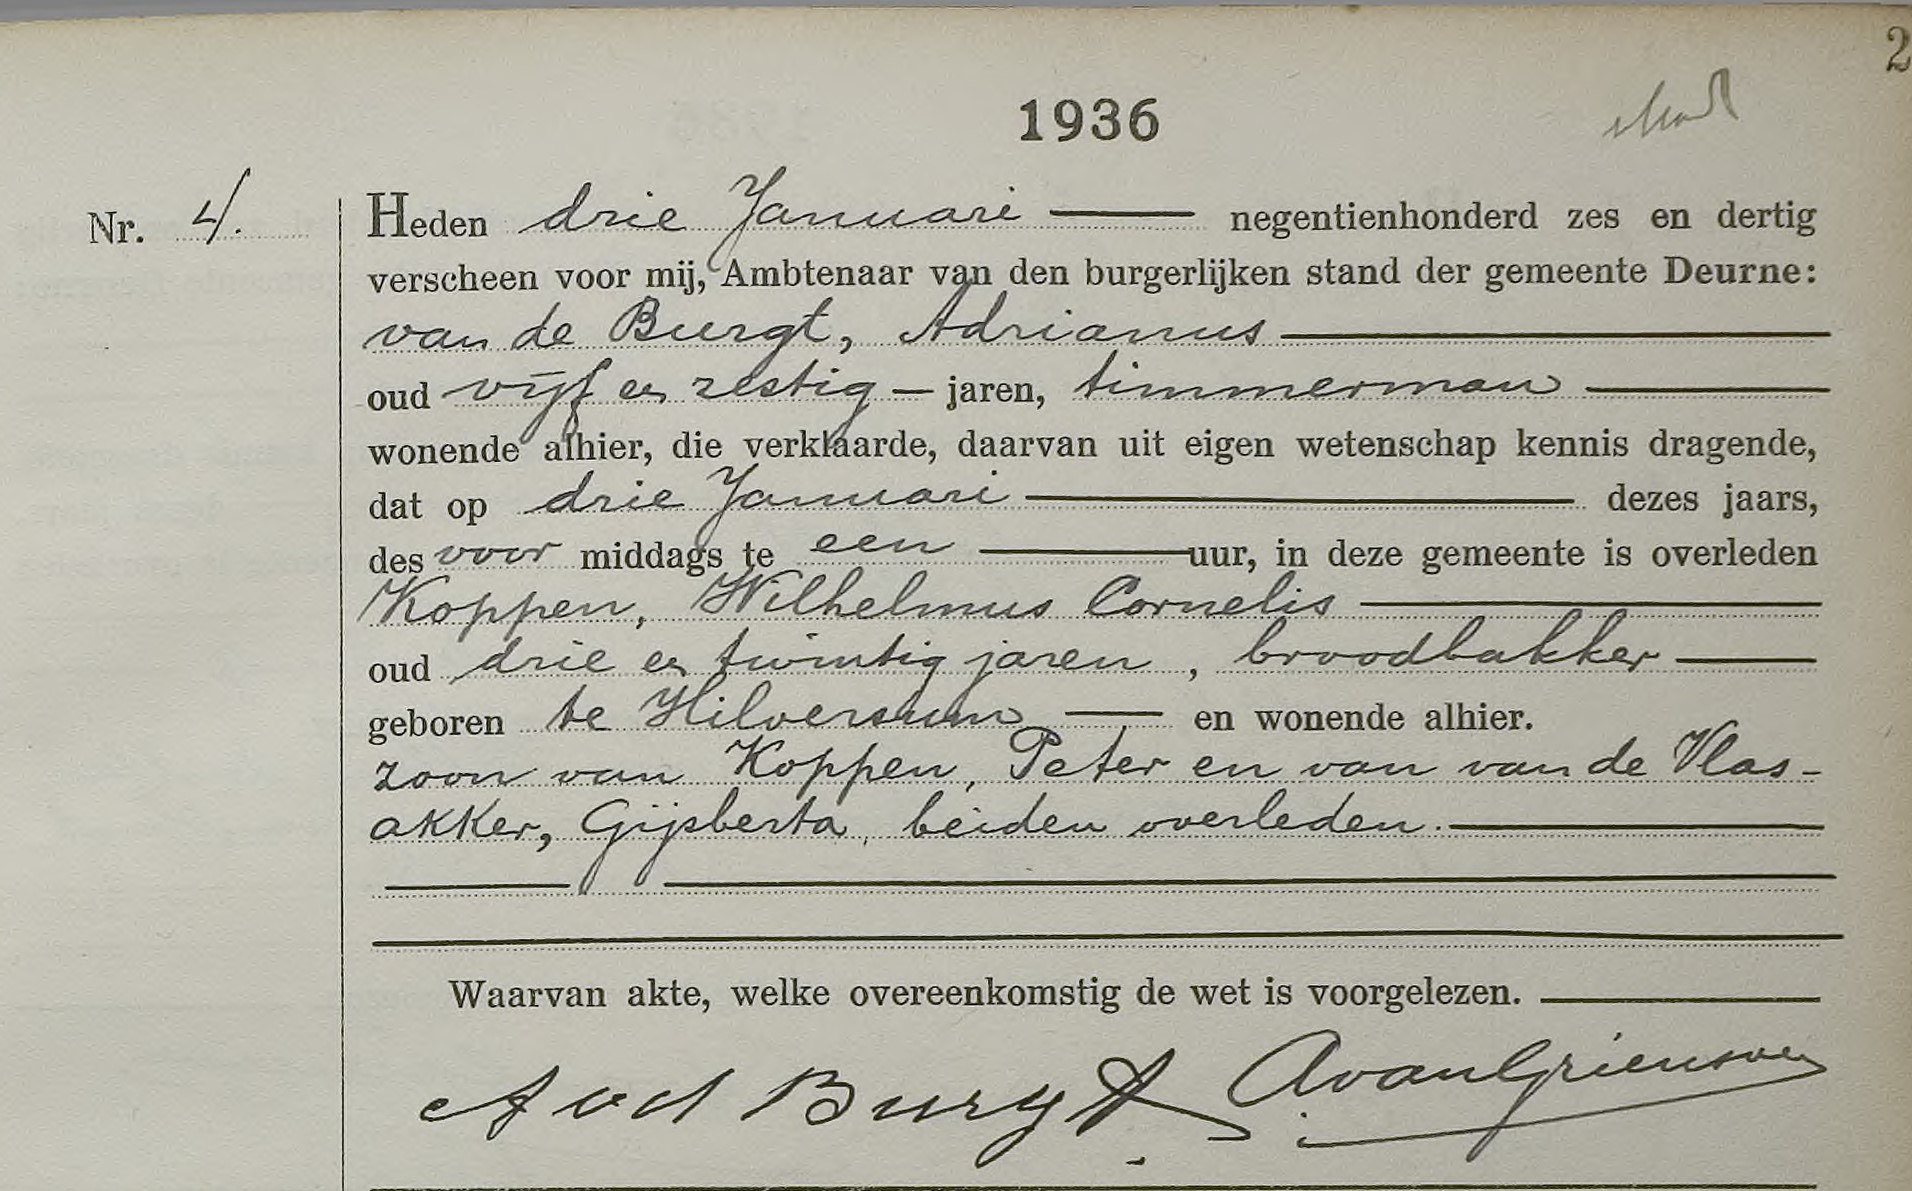 2
1936
Nr. 4.
Heden drie Januari negentienhonderd zes en dertig
verscheen voor mij, Ambtenaar van den burgerlijken stand der gemeente Deurne:
van de Burgt, Adrianus
oud vijf en zestig — jaren, timmerman
wonende alhier, die verklaarde, daarvan uit eigen wetenschap kennis dragende,
dat op drie Januari dezes jaars,
des voor middags te een uur, in deze gemeente is overleden
Koppen, Wilhelmus Cornelis
oud drie en twintig jaren, broodbakker
geboren te Hilversum en wonende alhier.
zoon van Koppen, Peter en van van de Vlas-
akker, Gijsberta, beiden overleden.
Waarvan akte, welke overeenkomstig de wet is voorgelezen.
A vd Burgt AvanGriensven